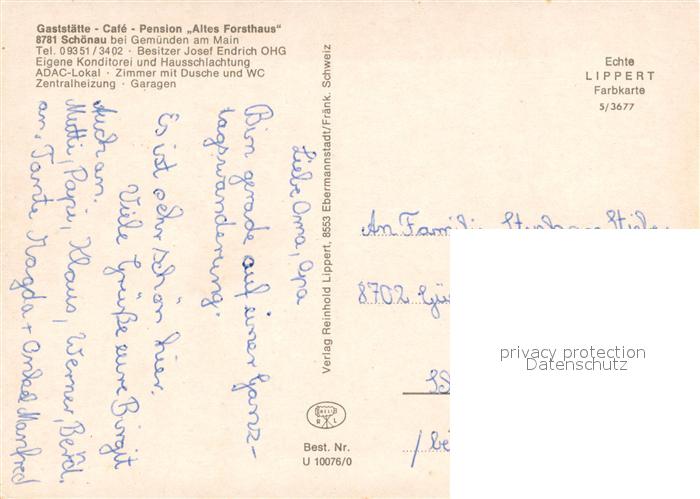 Gaststätte - Café - Pension „Altes Forsthaus"
8781 Schönau bei Gemünden am Main
Tel. 09351/3402 · Besitzer Josef Endrich OHG
Eigene Konditorei und Hausschlachtung
ADAC-Lokal · Zimmer mit Dusche und WC
Zentralheizung · Garagen
Echte
LIPPERT
Farbkarte
5/3677
Liebe Oma, Opa
Bin gerade auf einer Ganz-
tagswanderung.
Es ist sehr schön hier.
Viele Grüße eure Birgit
Auch an.
Mutti, Papi, Klaus, Werner, Bernd.
an, Tante Magda + Onkel Manfred
Verlag Reinhold Lippert, 8553 Ebermannstadt/Fränk. Schweiz
An Familie
8702
privacy protection
Datenschutz
Best. Nr.
U 10076/0